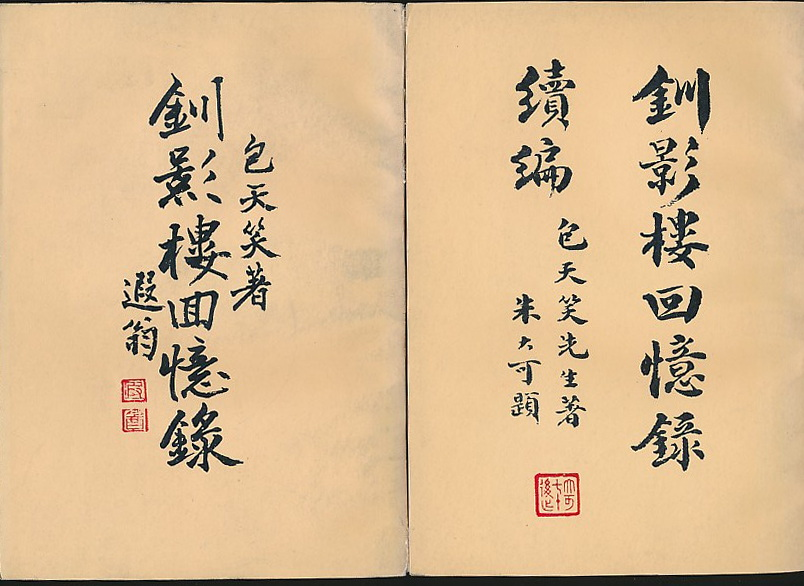 釧影樓回憶錄
續編
包天笑先生著
朱大可題
包天笑著
釧影樓回憶錄
遐翁